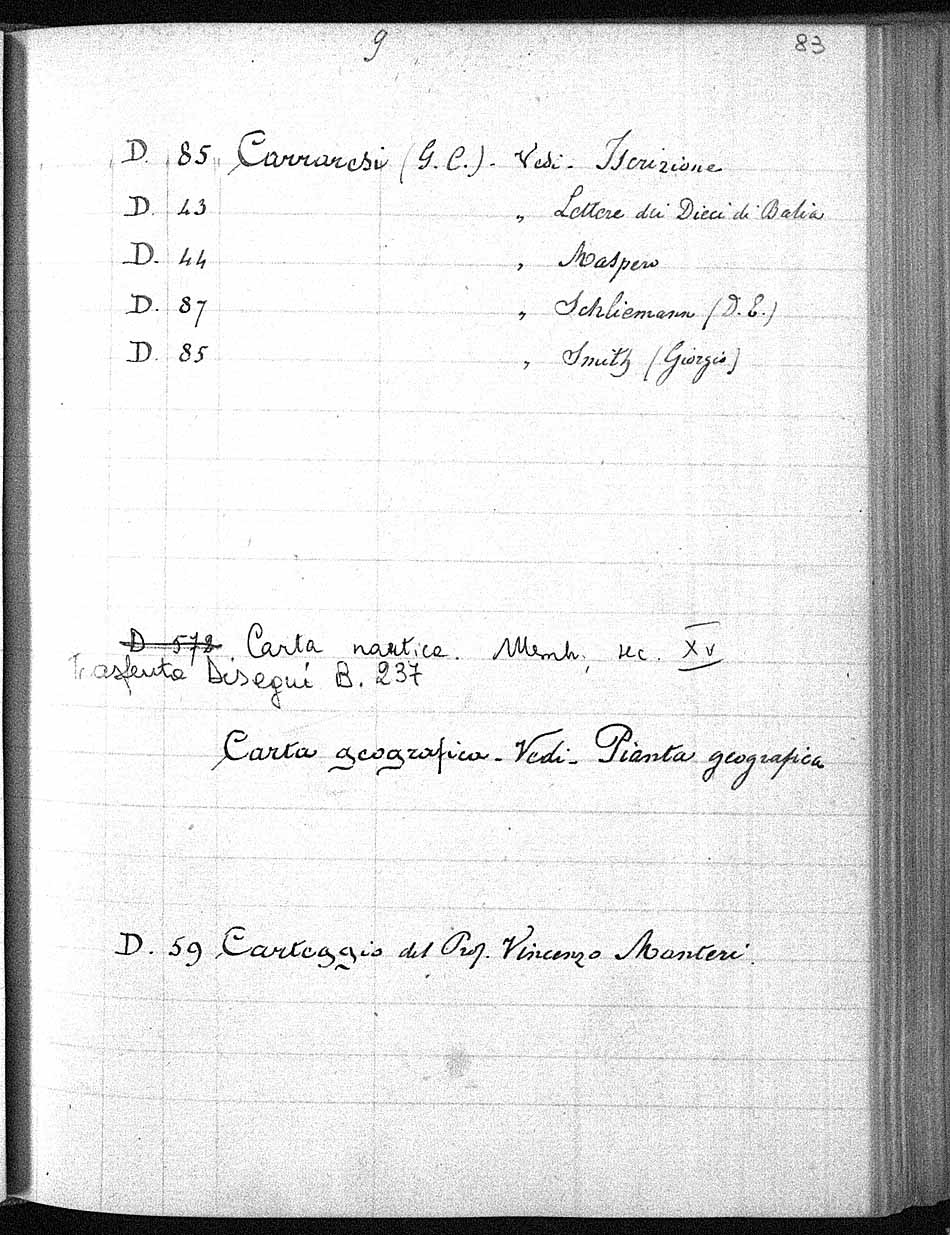 9 83
D. 85 Carraresi (G. C.) - Vedi - Iscrizione
D. 43 " Lettere dei Dieci di Balia
D. 44 " Maspero
D. 87 " Schliemann (D. E.)
D. 85 " Smith (Giorgio)
D 578 Carta nautica. Memb., sec. XV
Trasferita Disegni B. 237
Carta geografica - Vedi - Pianta geografica
D. 59 Carteggio del Prof. Vincenzo Manteri.